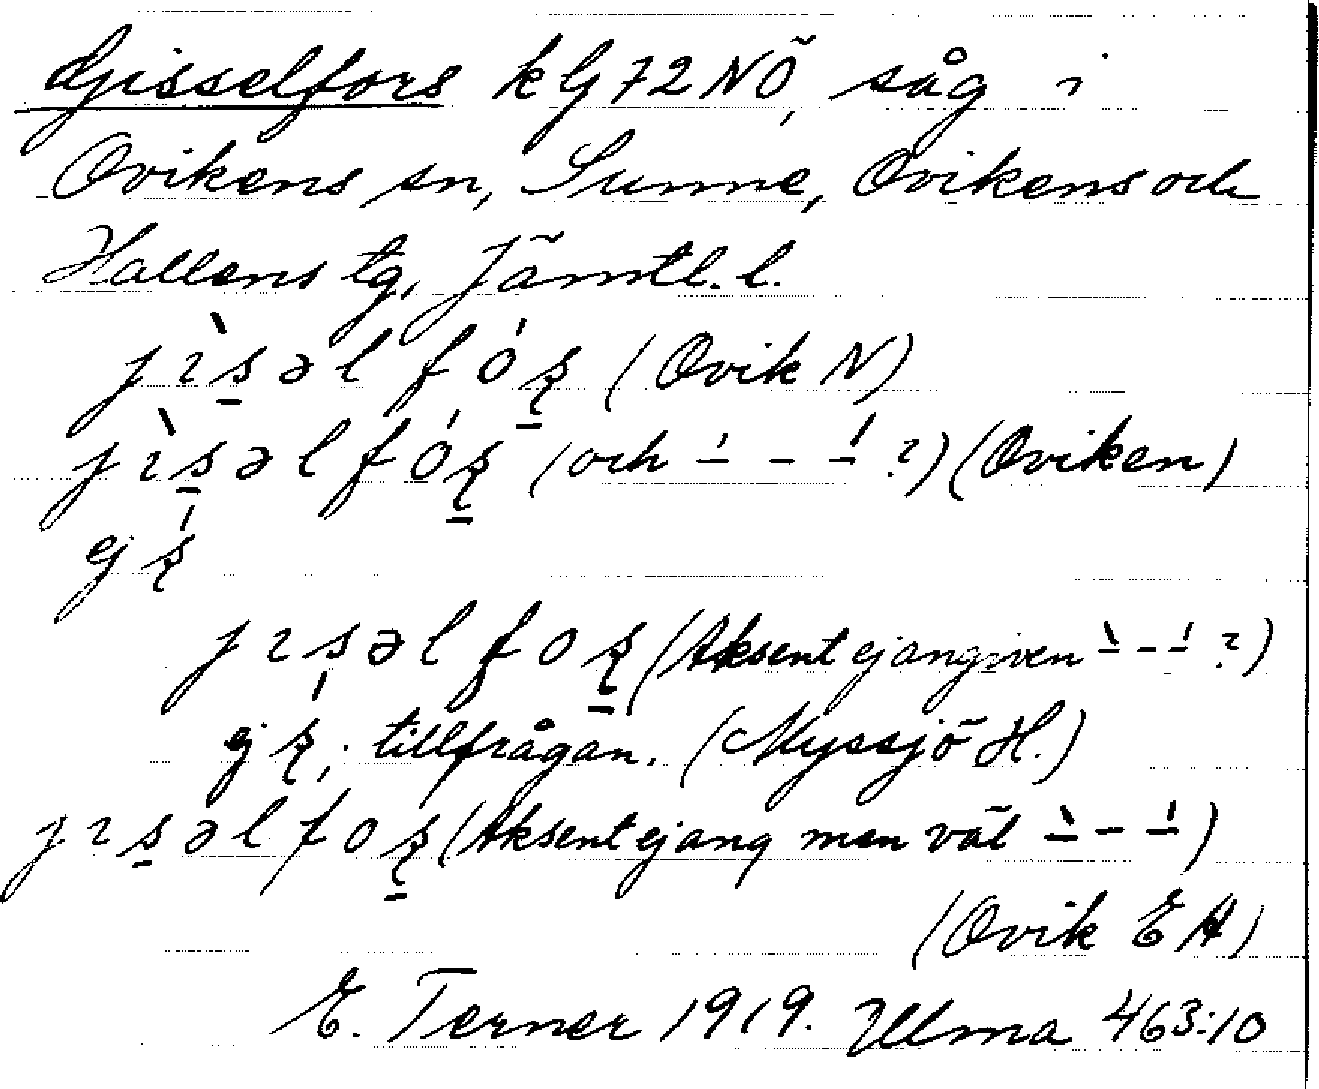 Gisselfors k G 72 NÖ, såg i
Ovikens sn, Sunne, Ovikens och
Hallens tg, Jämtl. l.
jɪ̀s̱əl fóʂ̱ (Ovik N)
jɪ̀s̱əl fóʂ̱ (och ´ - - ´ ?) (Oviken)
ej ʂ́
jɪśəl foʂ̱ (Aksent ej angiven ` - - ´ ?)
ej ʂ, tillfrågan. (Myssjö H.)
jɪs̱əl foʂ̱ (Aksent ej ang men väl ` - ´)
(Ovik E H)
E. Terner 1919. Ulma 463:10